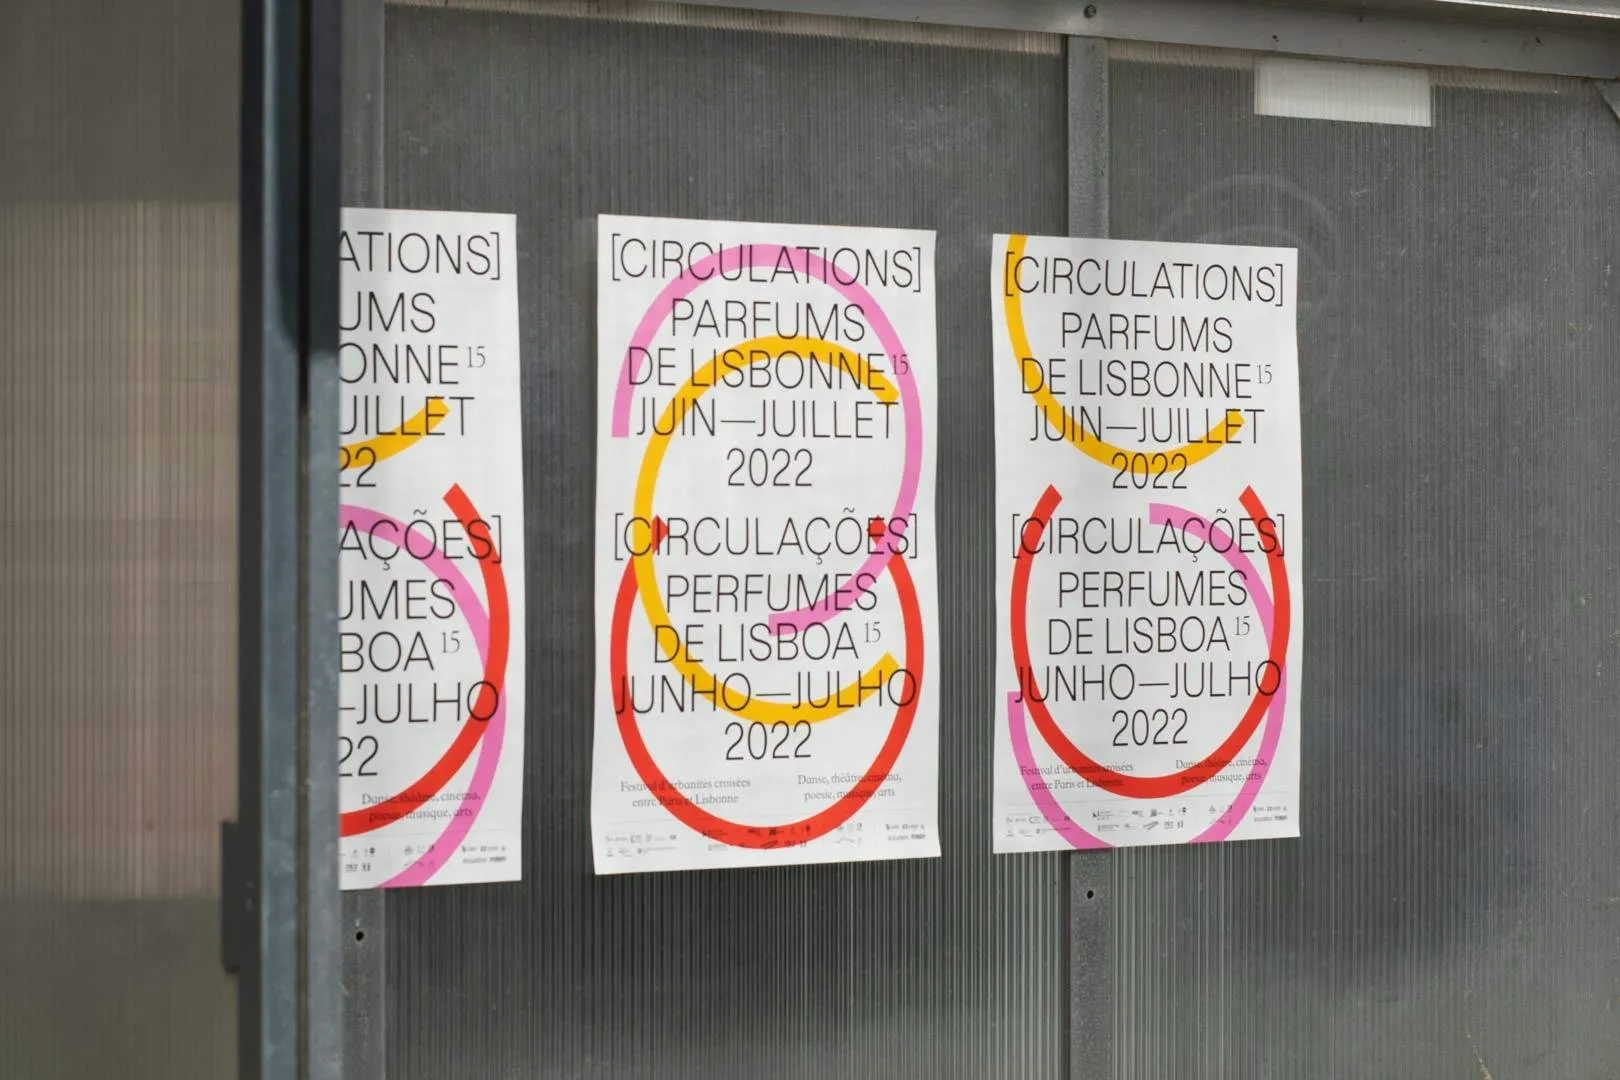 ATIONS]
UMS
ONNE 15
UILLET
22
AÇÕES]
UMES
BOA 15
—JULHO
22
Danse, théâtre, cinéma,
poesie, musique, arts
[CIRCULATIONS]
PARFUMS
DE LISBONNE 15
JUIN—JUILLET
2022
[CIRCULAÇÕES]
PERFUMES
DE LISBOA 15
JUNHO—JULHO
2022
Festival d'urbanités croisées
entre Paris et Lisbonne
Danse, théâtre, cinéma,
poesie, musique, arts
[CIRCULATIONS]
PARFUMS
DE LISBONNE 15
JUIN—JUILLET
2022
[CIRCULAÇÕES]
PERFUMES
DE LISBOA 15
JUNHO—JULHO
2022
Festival d'urbanités croisées
entre Paris et Lisbonne
Danse, théâtre, cinéma,
poesie, musique, arts